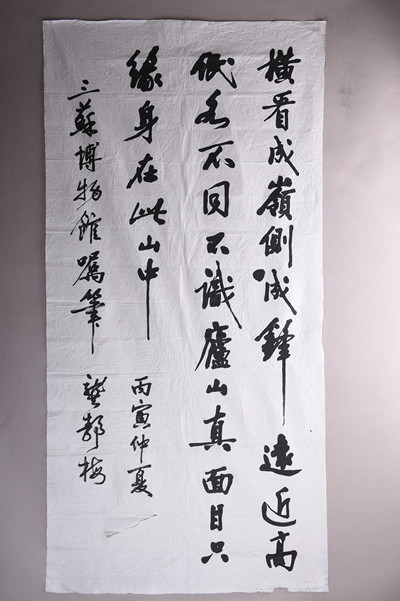 橫看成嶺側成鋒遠近高
低各不同不識廬山真面目只
緣身在此山中
丙寅仲夏
三蘇博物館囑筆
龔 梅